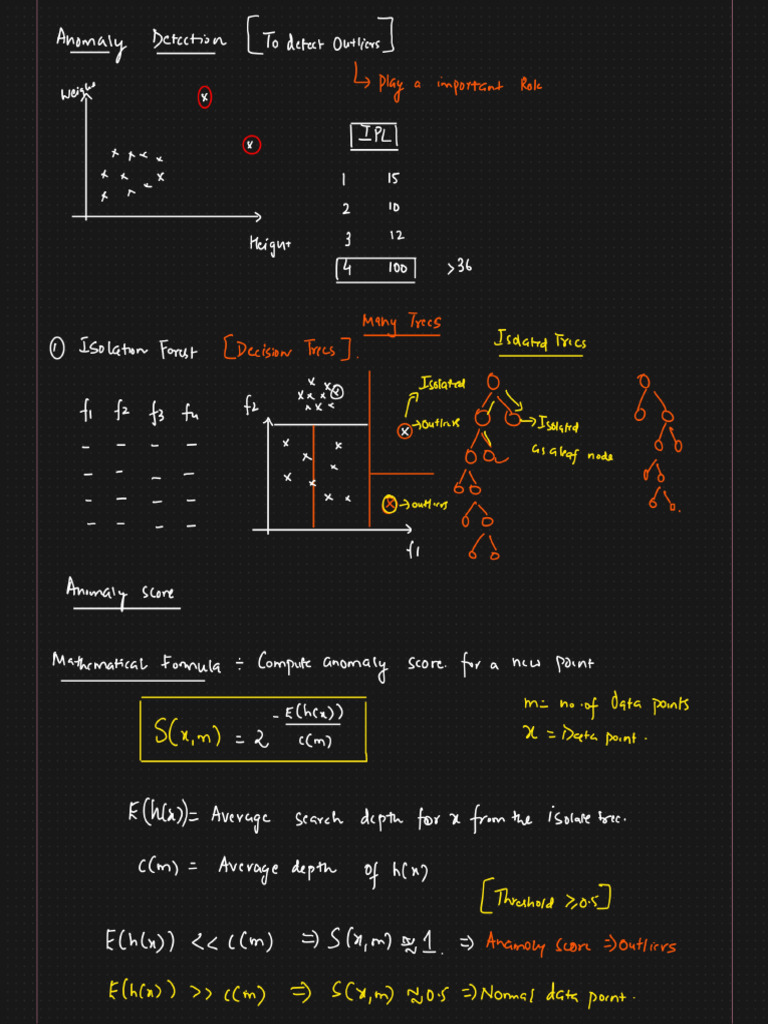 Anomaly Detection [To detect Outliers]
↳ Play a important Role
Weight
Height
IPL
1 15
2 10
3 12
4 100 >36
① Isolation Forest [Decision Trees].
Many Trees
Isolated Trees
f1 f2 f3 f4
f2
f1
Isolated
→ Outliers
→ outliers
→ Isolated
as a leaf node
Anomaly Score
Mathematical Formula ÷ Compute anomaly score for a new point
S(x,m) = 2^-E(h(x))/c(m)
m = no. of data points
x = Data point.
E(h(x)) = Average search depth for x from the isolate tree.
c(m) = Average depth of h(x)
[Threshold ≥ 0.5]
E(h(x)) << c(m) ⇒ S(x,m) ≈ 1. ⇒ Anamoly score ⇒ Outliers
E(h(x)) >> c(m) ⇒ S(x,m) ≈ 0.5 ⇒ Normal data point.